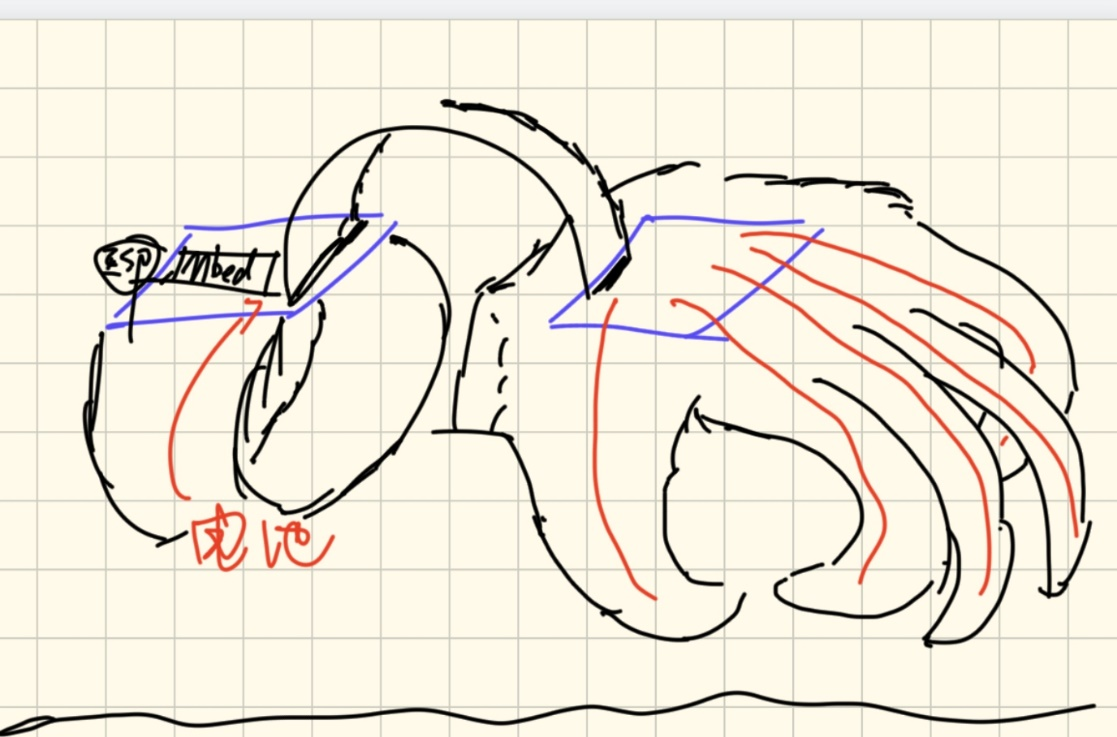 ESP
Mbed
电池